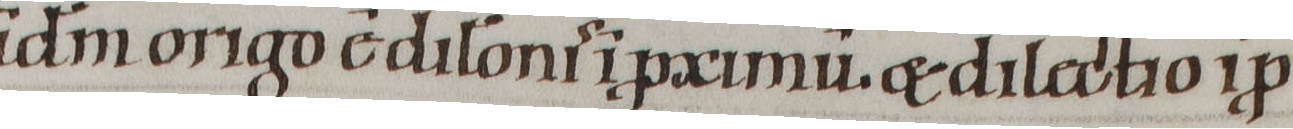 ı̄dm̄ origo ē dil̄onis ı̄ ꝓximū. & dilectio ı̄ ꝓ